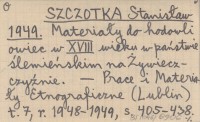 SZCZOTKA Stanisław
1949. Materiały do hodowli
owiec w XVIII wieku w państwie
ślemieńskim na Żywiecz-
czyźnie. — Prace i Materia-
ły Etnograficzne (Lublin)
t. 7, r. 1948-1949, s. 405-438.